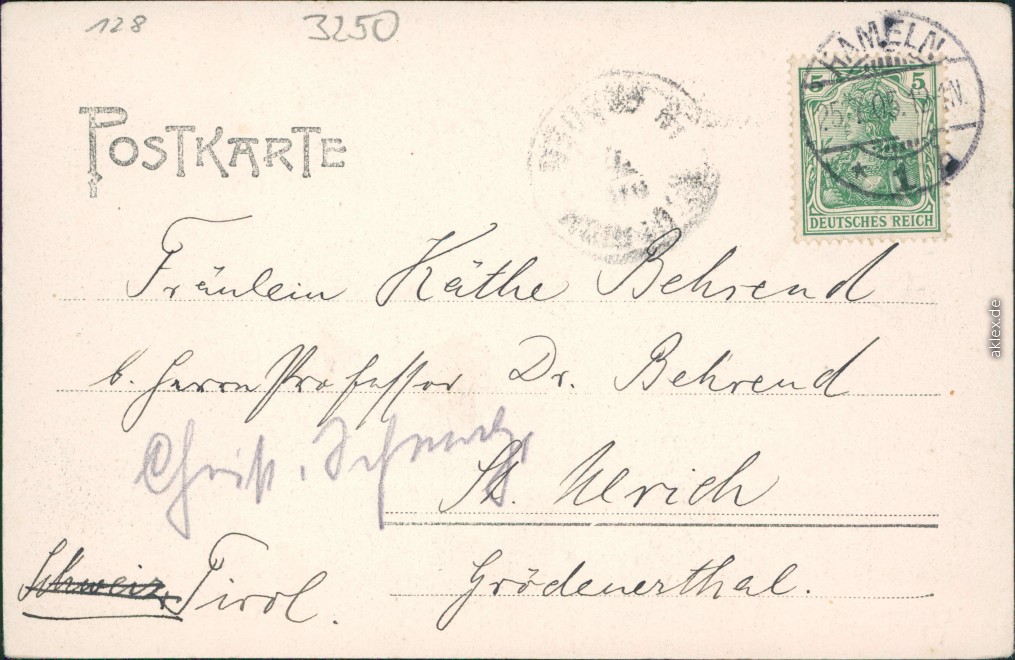 128
3250
POSTKARTE
HAMELN
1
5 5
DEUTSCHES REICH
Fräulein Käthe Behrend
b. Herrn Professor Dr. Behrend
Christ.
St. Ulrich
Schweiz Tirol.
Grödenerthal.
aklex.de